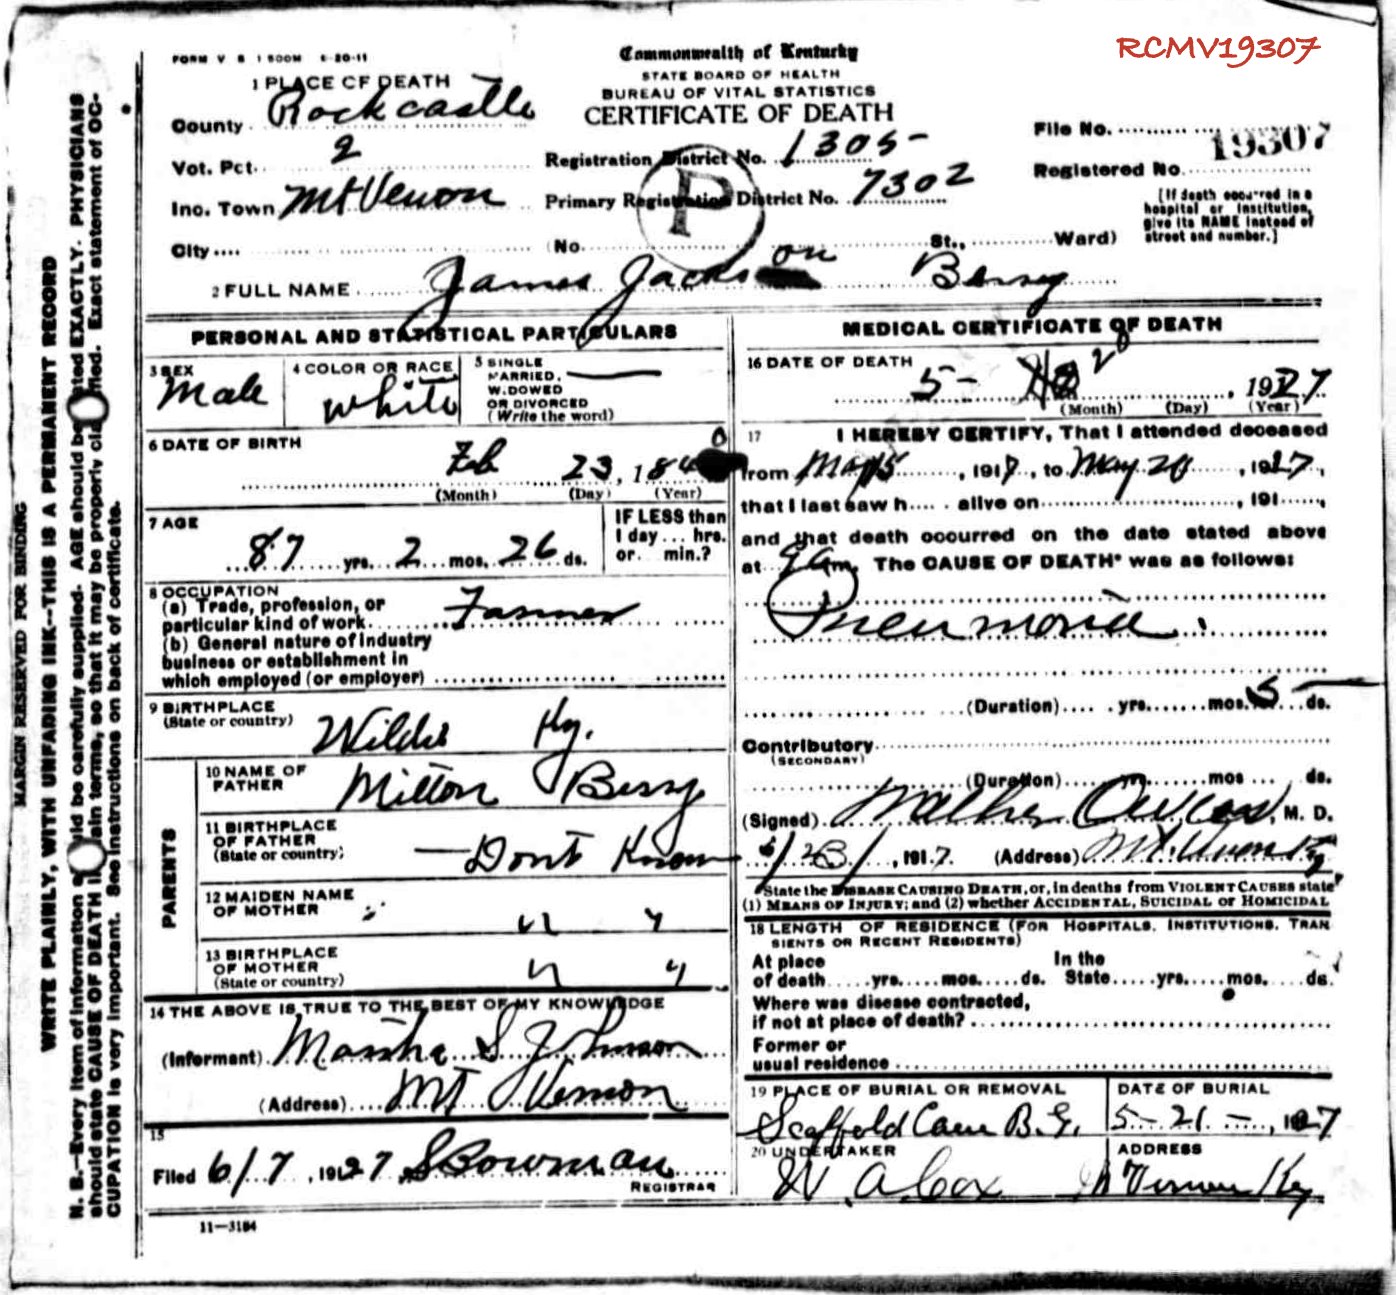 RCMV19307
FORM V S 1 500M 6-20-11
Commonwealth of Kentucky
STATE BOARD OF HEALTH
BUREAU OF VITAL STATISTICS
CERTIFICATE OF DEATH
1 PLACE OF DEATH
County Rockcastle
Vot. Pct. 2
Inc. Town Mt Vernon
City
Registration District No. 1305
Primary Registration District No. 7302
P
File No. 19307
Registered No.
(No. St., Ward)
[If death occurred in a
hospital or institution,
give its NAME instead of
street and number.]
2 FULL NAME James Jackson Berry
PERSONAL AND STATISTICAL PARTICULARS
3 SEX
Male
4 COLOR OR RACE
white
5 SINGLE
MARRIED,
WIDOWED
OR DIVORCED
(Write the word)
6 DATE OF BIRTH
Feb 23, 1840
(Month) (Day) (Year)
7 AGE
87 yrs. 2 mos. 26 ds.
IF LESS than
1 day ... hrs.
or ... min.?
8 OCCUPATION
(a) Trade, profession, or
particular kind of work Farmer
(b) General nature of Industry
business or establishment in
which employed (or employer)
9 BIRTHPLACE
(State or country)
Wildie Ky.
PARENTS
10 NAME OF
FATHER
Milton Berry
11 BIRTHPLACE
OF FATHER
(State or country)
Dont Know
12 MAIDEN NAME
OF MOTHER
" "
13 BIRTHPLACE
OF MOTHER
(State or country)
" "
14 THE ABOVE IS TRUE TO THE BEST OF MY KNOWLEDGE
(Informant) Martha S Johnson
(Address) Mt Vernon
15
Filed 6/7, 1927, S Bowman
REGISTRAR
11-3184
MEDICAL CERTIFICATE OF DEATH
16 DATE OF DEATH
5- 20, 1927
(Month) (Day) (Year)
17 I HEREBY CERTIFY, That I attended deceased
from May 15, 1917, to May 20, 1927,
that I last saw h.... alive on, 191....,
and that death occurred on the date stated above
at 9 am. The CAUSE OF DEATH* was as follows:
Pneumonia.
(Duration) yrs. mos. 5 ds.
Contributory
(SECONDARY)
(Duration) yrs. mos ds.
(Signed) Walker Owens, M. D.
191 7. (Address) Mt. Vernon Ky
*State the DISEASE CAUSING DEATH, or, in deaths from VIOLENT CAUSES state
(1) MEANS OF INJURY; and (2) whether ACCIDENTAL, SUICIDAL or HOMICIDAL
18 LENGTH OF RESIDENCE (FOR HOSPITALS, INSTITUTIONS, TRAN
SIENTS OR RECENT RESIDENTS)
At place In the
of death yrs. mos. ds. State yrs. mos. ds.
Where was disease contracted,
if not at place of death?
Former or
usual residence
19 PLACE OF BURIAL OR REMOVAL
Scaffold Cane B.G.
DATE OF BURIAL
5-21-, 1927
20 UNDERTAKER
W. A. Cox
ADDRESS
Mt Vernon Ky
MARGIN RESERVED FOR BINDING
WRITE PLAINLY, WITH UNFADING INK--THIS IS A PERMANENT RECORD
N. B.--Every item of information should be carefully supplied. AGE should be stated EXACTLY. PHYSICIANS
should state CAUSE OF DEATH in plain terms, so that it may be properly classified. Exact statement of OC-
CUPATION is very important. See instructions on back of certificate.